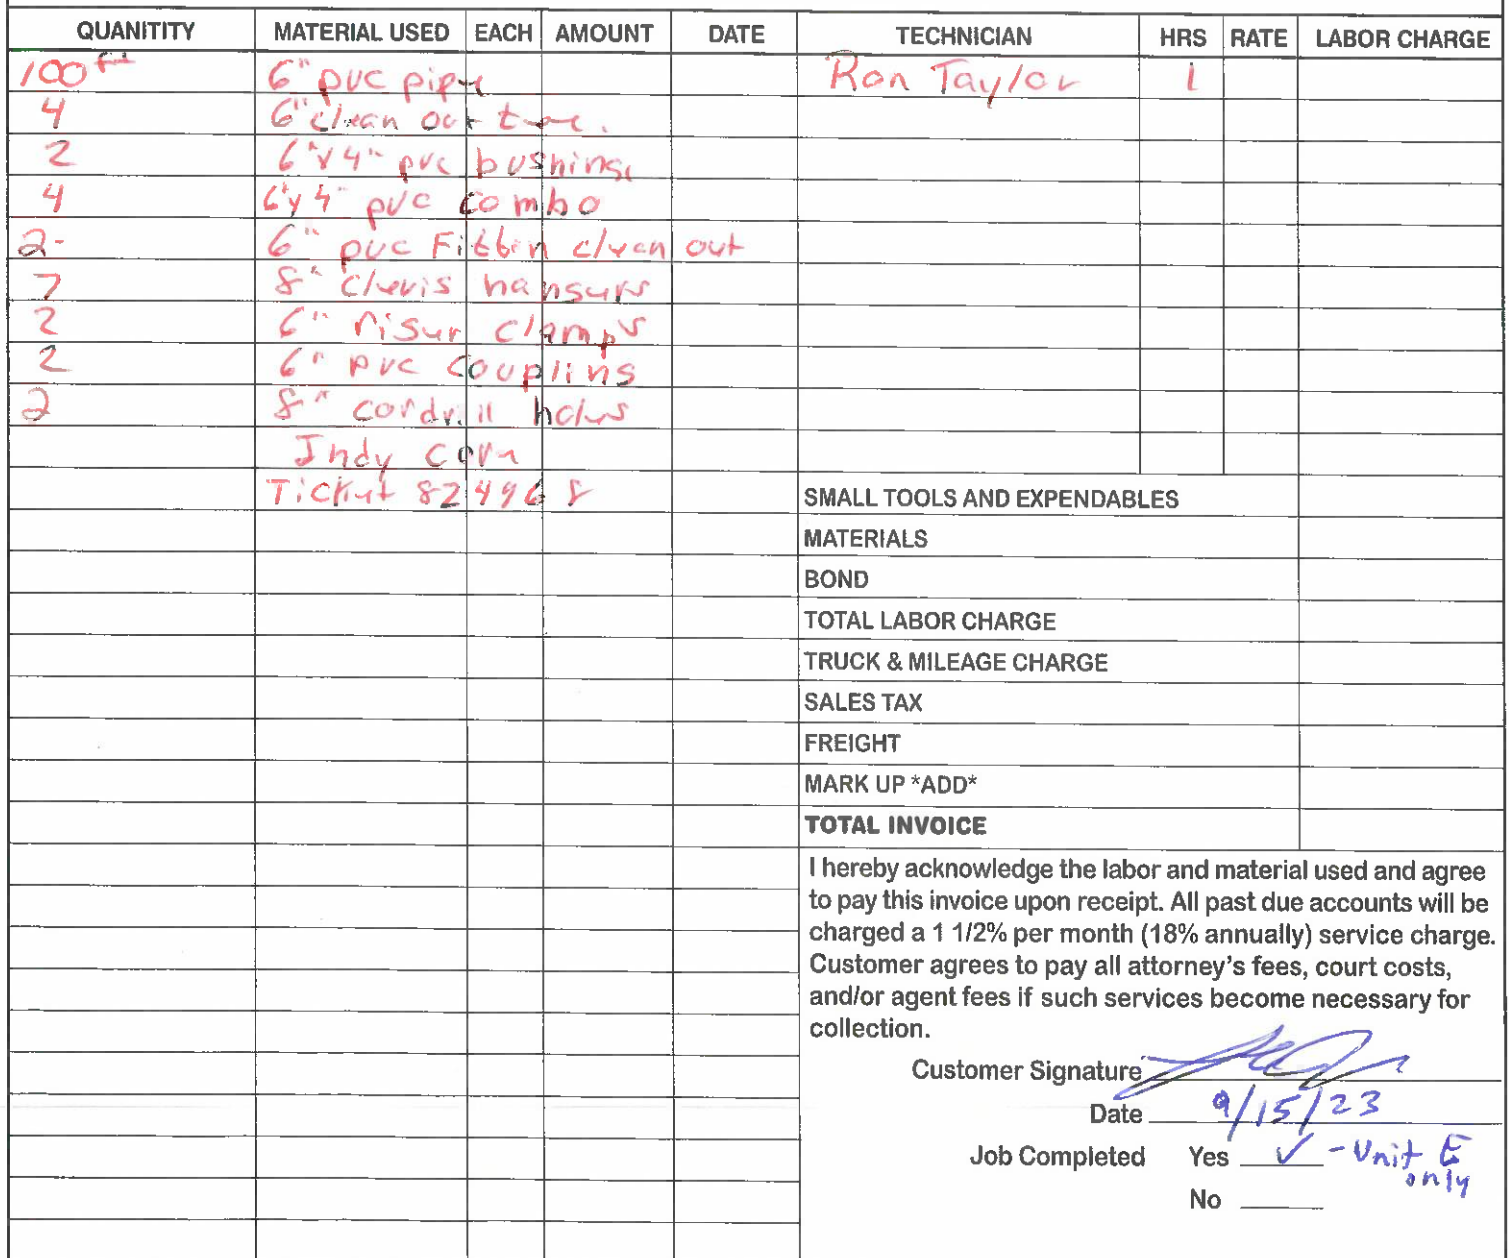 QUANITITY MATERIAL USED EACH AMOUNT DATE TECHNICIAN HRS RATE LABOR CHARGE
100 ft 6" pvc pipe Ron Taylor 1
4 6" clean out tee.
2 6"x4" pvc bushing
4 6"x4" pvc combo
2 6" pvc Fittin clean out
7 8" clevis hangers
2 6" riser clamps
2 6" pvc coupling
2 8" cordrill holes
Indy Core
Ticket 824968
SMALL TOOLS AND EXPENDABLES
MATERIALS
BOND
TOTAL LABOR CHARGE
TRUCK & MILEAGE CHARGE
SALES TAX
FREIGHT
MARK UP *ADD*
TOTAL INVOICE
I hereby acknowledge the labor and material used and agree
to pay this invoice upon receipt. All past due accounts will be
charged a 1 1/2% per month (18% annually) service charge.
Customer agrees to pay all attorney's fees, court costs,
and/or agent fees if such services become necessary for
collection.
Customer Signature
Date 9/15/23
Job Completed Yes ✓ - Unit E
only
No